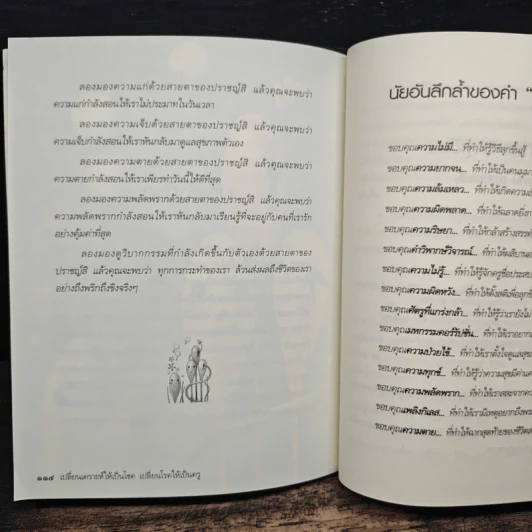 ลองมองความแก่ด้วยสายตาของปราชญ์สิ แล้วคุณจะพบว่า
ความแก่กำลังสอนให้เราไม่ประมาทในวันเวลา
ลองมองความเจ็บด้วยสายตาของปราชญ์สิ แล้วคุณจะพบว่า
ความเจ็บกำลังสอนให้เราหันกลับมาดูแลสุขภาพตัวเอง
ลองมองความตายด้วยสายตาของปราชญ์สิ แล้วคุณจะพบว่า
ความตายกำลังสอนให้เราเพียรทำวันนี้ให้ดีที่สุด
ลองมองความพลัดพรากด้วยสายตาของปราชญ์สิ แล้วคุณจะพบว่า
ความพลัดพรากกำลังสอนให้เราหันกลับมาเรียนรู้ที่จะอยู่กับคนที่เรารัก
อย่างคุ้มค่าที่สุด
ลองมองดูวิบากกรรมที่กำลังเกิดขึ้นกับตัวเองด้วยสายตาของ
ปราชญ์สิ แล้วคุณจะพบว่า ทุกการกระทำของเรา ล้วนส่งผลถึงชีวิตของเรา
อย่างถึงพริกถึงขิงจริงๆ
๑๑๔ เปลี่ยนเคราะห์ให้เป็นโชค เปลี่ยนโรคให้เป็นครู
นัยอันลึกล้ำของคำ “
ขอบคุณความไม่มี... ที่ทำให้รู้วิธีลุกขึ้นสู้
ขอบคุณความยากจน... ที่ทำให้เป็นคนมุมา
ขอบคุณความล้มเหลว... ที่ทำให้เกิดความ
ขอบคุณความผิดพลาด... ที่ทำให้ฉลาดยิ่ง
ขอบคุณความริษยา... ที่ทำให้กล้าสร้างสรร
ขอบคุณคำวิพากษ์วิจารณ์... ที่ทำให้
ขอบคุณความไม่รู้... ที่ทำให้รู้จักครูชื่อประสบ
ขอบคุณความผิดหวัง... ที่ทำให้ตั้งสติเพื่อลุก
ขอบคุณศัตรูที่แกร่งกล้า... ที่ทำให้รู้ว่าเรายังไม่
ขอบคุณมหกรรมคอร์รัปชั่น... ที่ทำให้เราอยาก
ขอบคุณความป่วยไข้... ที่ทำให้เราตั้งใจดูแลสุข
ขอบคุณความทุกข์... ที่ทำให้รู้ว่าความสุขมีค่า
ขอบคุณความพลัดพราก... ที่ทำให้เราสละจาก
ขอบคุณเพลิงกิเลส... ที่ทำให้เรามีเหตุอยากถึง
ขอบคุณความตาย... ที่ทำให้ฉากสุดท้ายของชีวิต